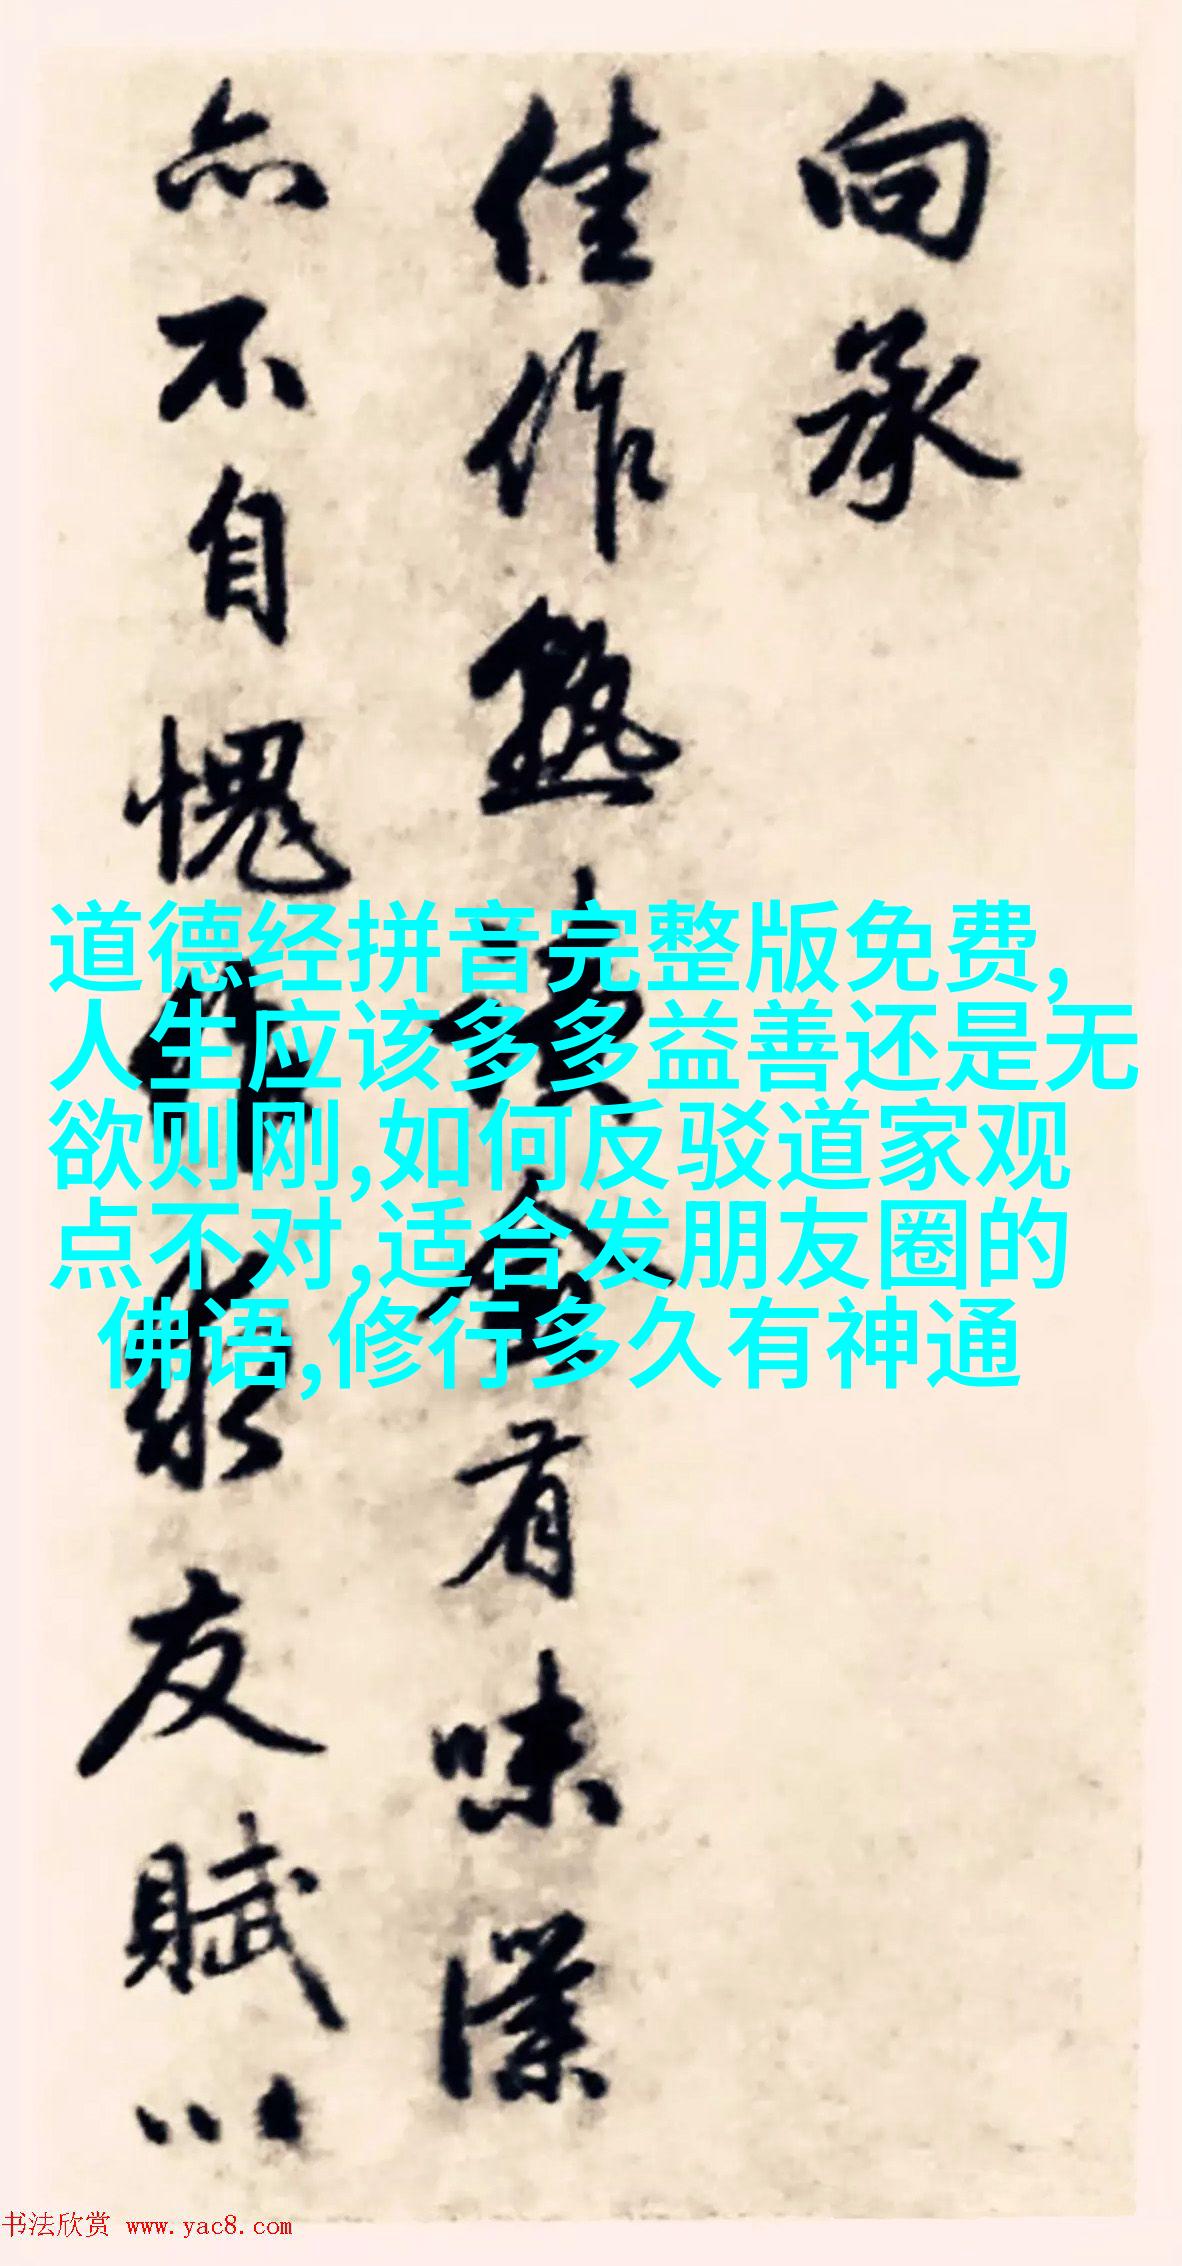 向承
佳作熟读会有味深
亦不自愧作张友赋以
道德经拼音完整版免费,
人生应该多多益善还是无
欲则刚,如何反驳道家观
点不对,适合发朋友圈的
佛语,修行多久有神通
书法欣赏 www.yac8.com